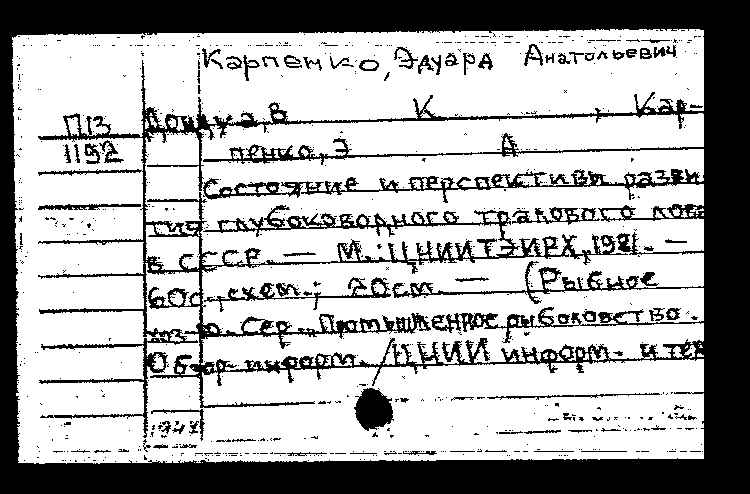 Карпенко, Эдуард Анатольевич
П13 Дондуа, В К , Кар-
1192 пенко, Э А
Состояние и перспективы разви
тия глубоководного тралового лова
в СССР. — М.: ЦНИИТЭИРХ, 1981. —
60с., схем.; 20см. — (Рыбное
хоз-ю. Сер. Промышленное рыболовство.
Обзор. информ. / ЦНИИ информ. и тех